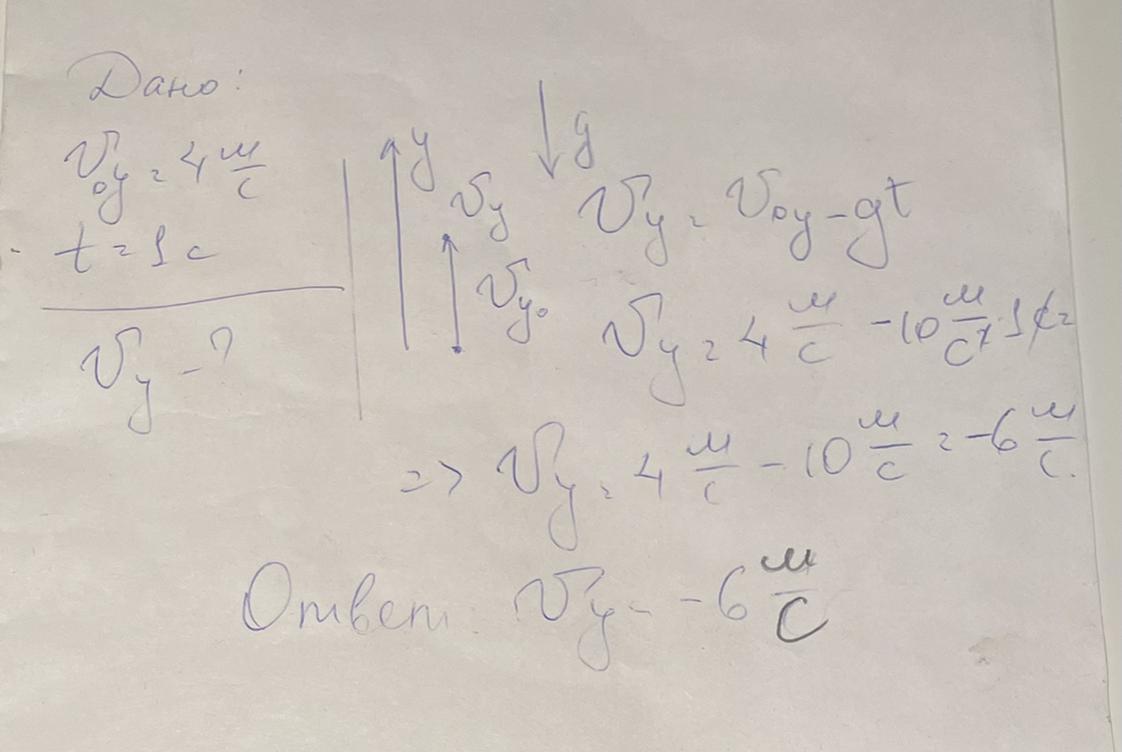 Дано:
v₀y = 4 м/с
t = 1 с
vy - ?
y
g
vy
vy₀
vy = v₀y - gt
vy = 4 м/с - 10 м/с² · 1 с =
=> vy = 4 м/с - 10 м/с = -6 м/с.
Ответ: vy = -6 м/с